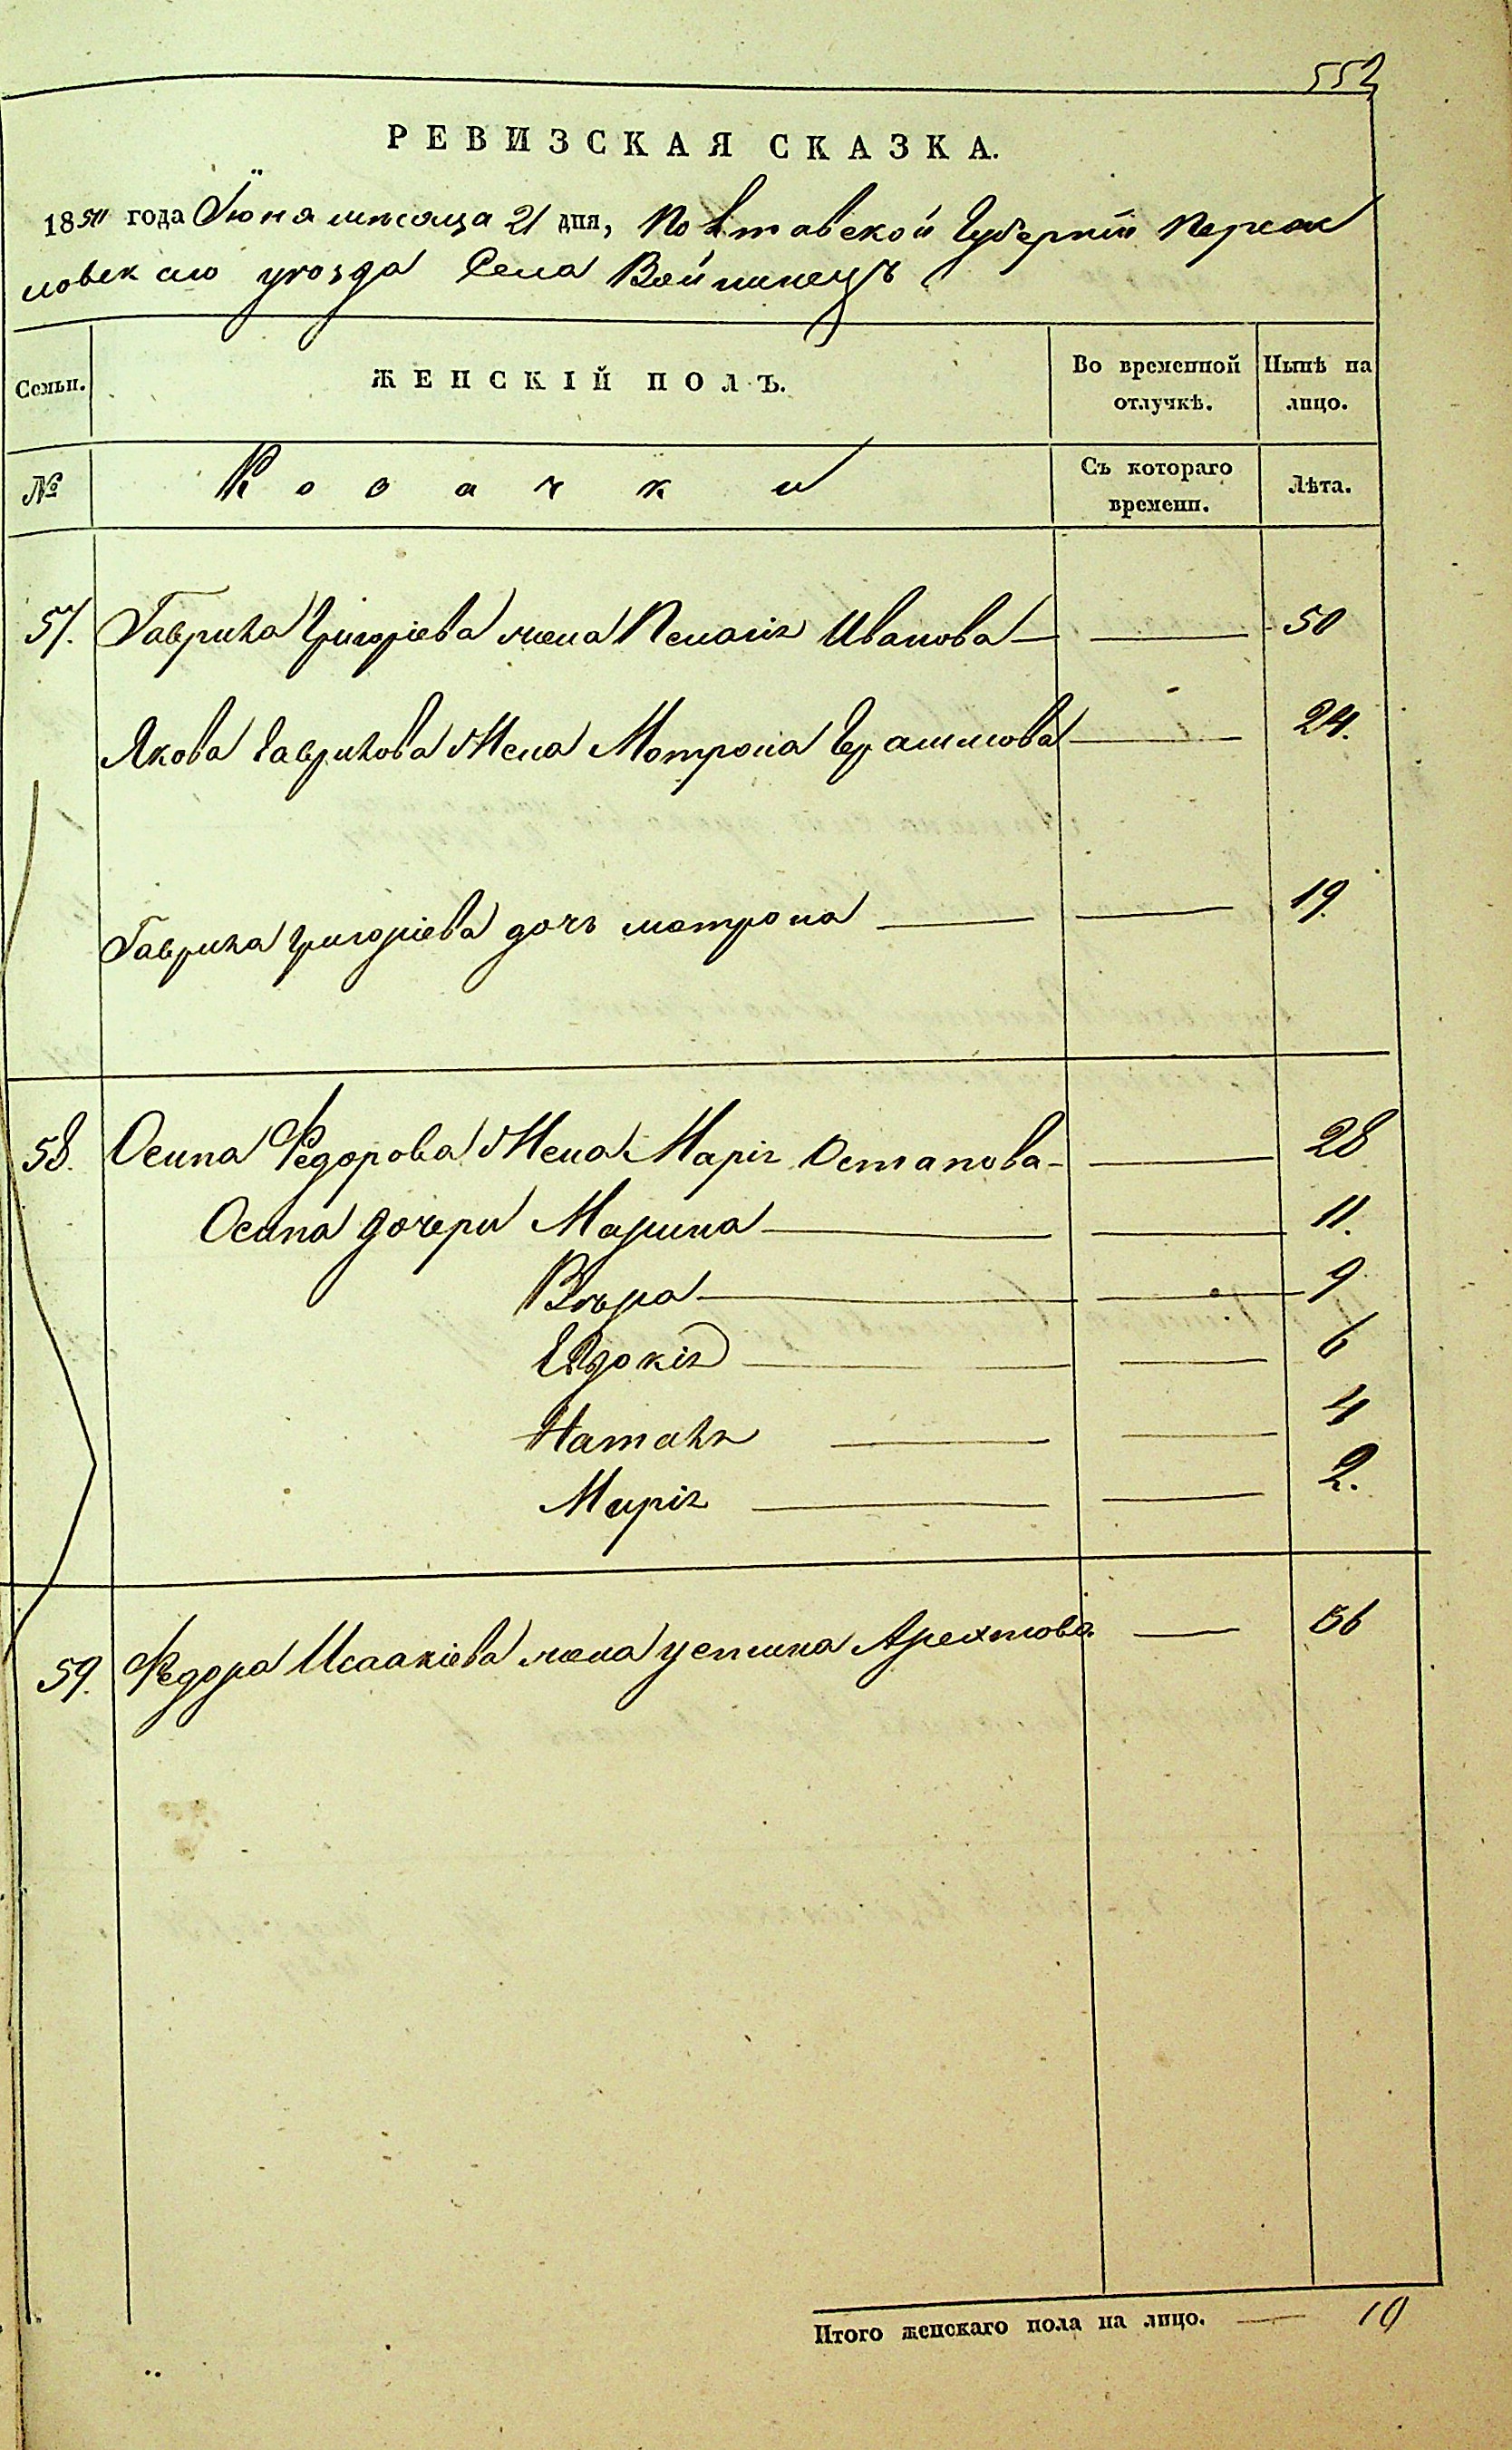 552
РЕВИЗСКАЯ СКАЗКА.
1850 года Іюня мѣсяца 21 дня, Полтавской Губерніи Переяс
ловскаго уѣзда Села Войтинецъ
Семьи. ЖЕНСКІЙ ПОЛЪ. Во временной отлучкѣ. Нынѣ на лицо.
№ Козачки Съ котораго времени. Лѣта.
57. Гаврила Григоріева жена Пелагія Иванова — — 50
Якова Гаврилова Жена Мотрона Герасимова — 24.
Гаврила Григоріева дочь мотрона — — 19.
58. Осипа Федорова Жена Марія Остапова — — 28
Осипа дочери Марина — — 11.
Вѣра — — 9
Евдокія — — 6
Наталія — — 4
Марія — — 2.
59. Федора Исаакіева жена устина — 56
Итого женскаго пола на лицо. — 10